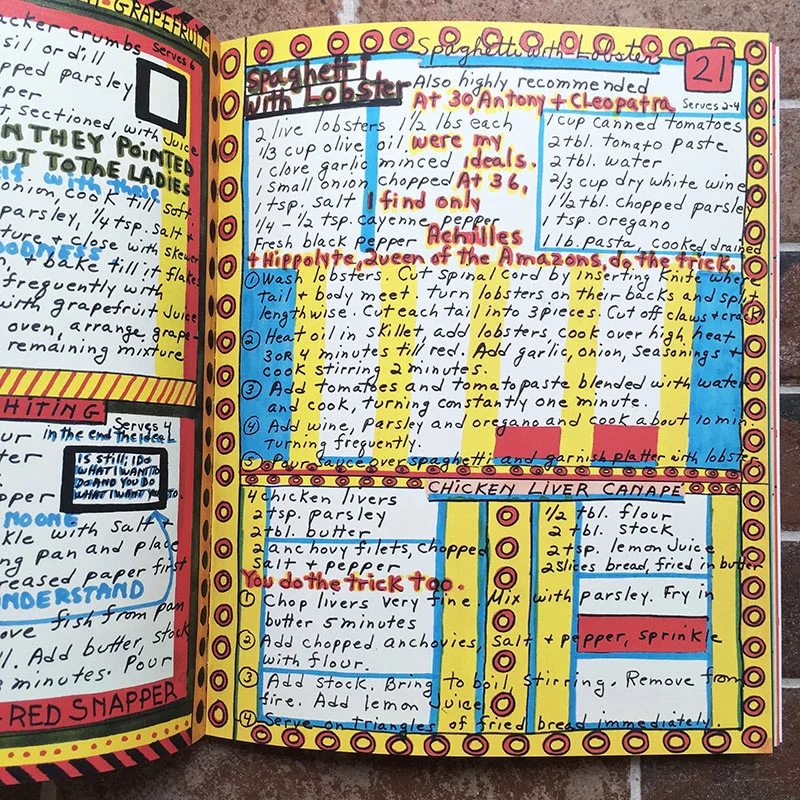 GRAPEFRUIT
acker crumbs Serves 6
sil or dill
pped parsley
per
t sectioned, with juice
N THEY POINTED
OUT TO THE LADIES
elf with these
onion, cook till soft
parsley, 1/4 tsp. salt +
ture + close with skewer
OODNESS
n, + bake till it flakes
frequently with
with grapefruit juice
oven, arrange grape-
remaining mixture
HITING
Serves 4
our in the end the ideal
ter is still; I do
WHAT I WANT TO
DO AND YOU DO
pepper WHAT I WANT YOU TO.
MOONE
kle with salt +
ng pan and place
reased paper first
UNDERSTAND
ove fish from pan
ll. Add butter, stock
minutes. Pour
RED SNAPPER
Spaghetti with Lobster
21
Spaghetti
with Lobster
Also highly recommended
At 30, Antony + Cleopatra
Serves 2-4
2 live lobsters 1 1/2 lbs each
1/3 cup olive oil
were my
1 clove garlic minced
ideals.
1 small onion chopped
At 36,
1 tsp. salt
I find only
1/4 - 1/2 tsp. cayenne pepper
Fresh black pepper
Achilles
1 cup canned tomatoes
2 tbl. tomato paste
2 tbl. water
2/3 cup dry white wine
1 1/2 tbl. chopped parsley
1 tsp. oregano
1 lb. pasta, cooked drained
+ Hippolyte, Queen of the Amazons, do the trick.
① Wash lobsters. Cut spinal cord by inserting knife where
tail + body meet. Turn lobsters on their backs and split
lengthwise. Cut each tail into 3 pieces. Cut off claws + crack
② Heat oil in skillet, add lobsters, cook over high heat
3 OR 4 minutes till red. Add garlic, onion, seasonings +
cook stirring 2 minutes.
③ Add tomatoes and tomato paste blended with water
and cook, turning constantly one minute.
④ Add wine, parsley and oregano and cook about 10 min.
Turning frequently.
⑤ Pour sauce over spaghetti and garnish platter with lobster
CHICKEN LIVER CANAPÉ
4 chicken livers
2 tsp. parsley
2 tbl. butter
2 anchovy filets, chopped
Salt + pepper
1/2 tbl. flour
2 tbl. stock
2 tsp. lemon juice
2 slices bread, fried in butter
You do the trick too.
① Chop livers very fine. Mix with parsley. Fry in
butter 5 minutes
② Add chopped anchovies, salt + pepper, sprinkle
with flour.
③ Add stock. Bring to boil, stirring. Remove from
fire. Add lemon juice
④ Serve on triangles of fried bread immediately.